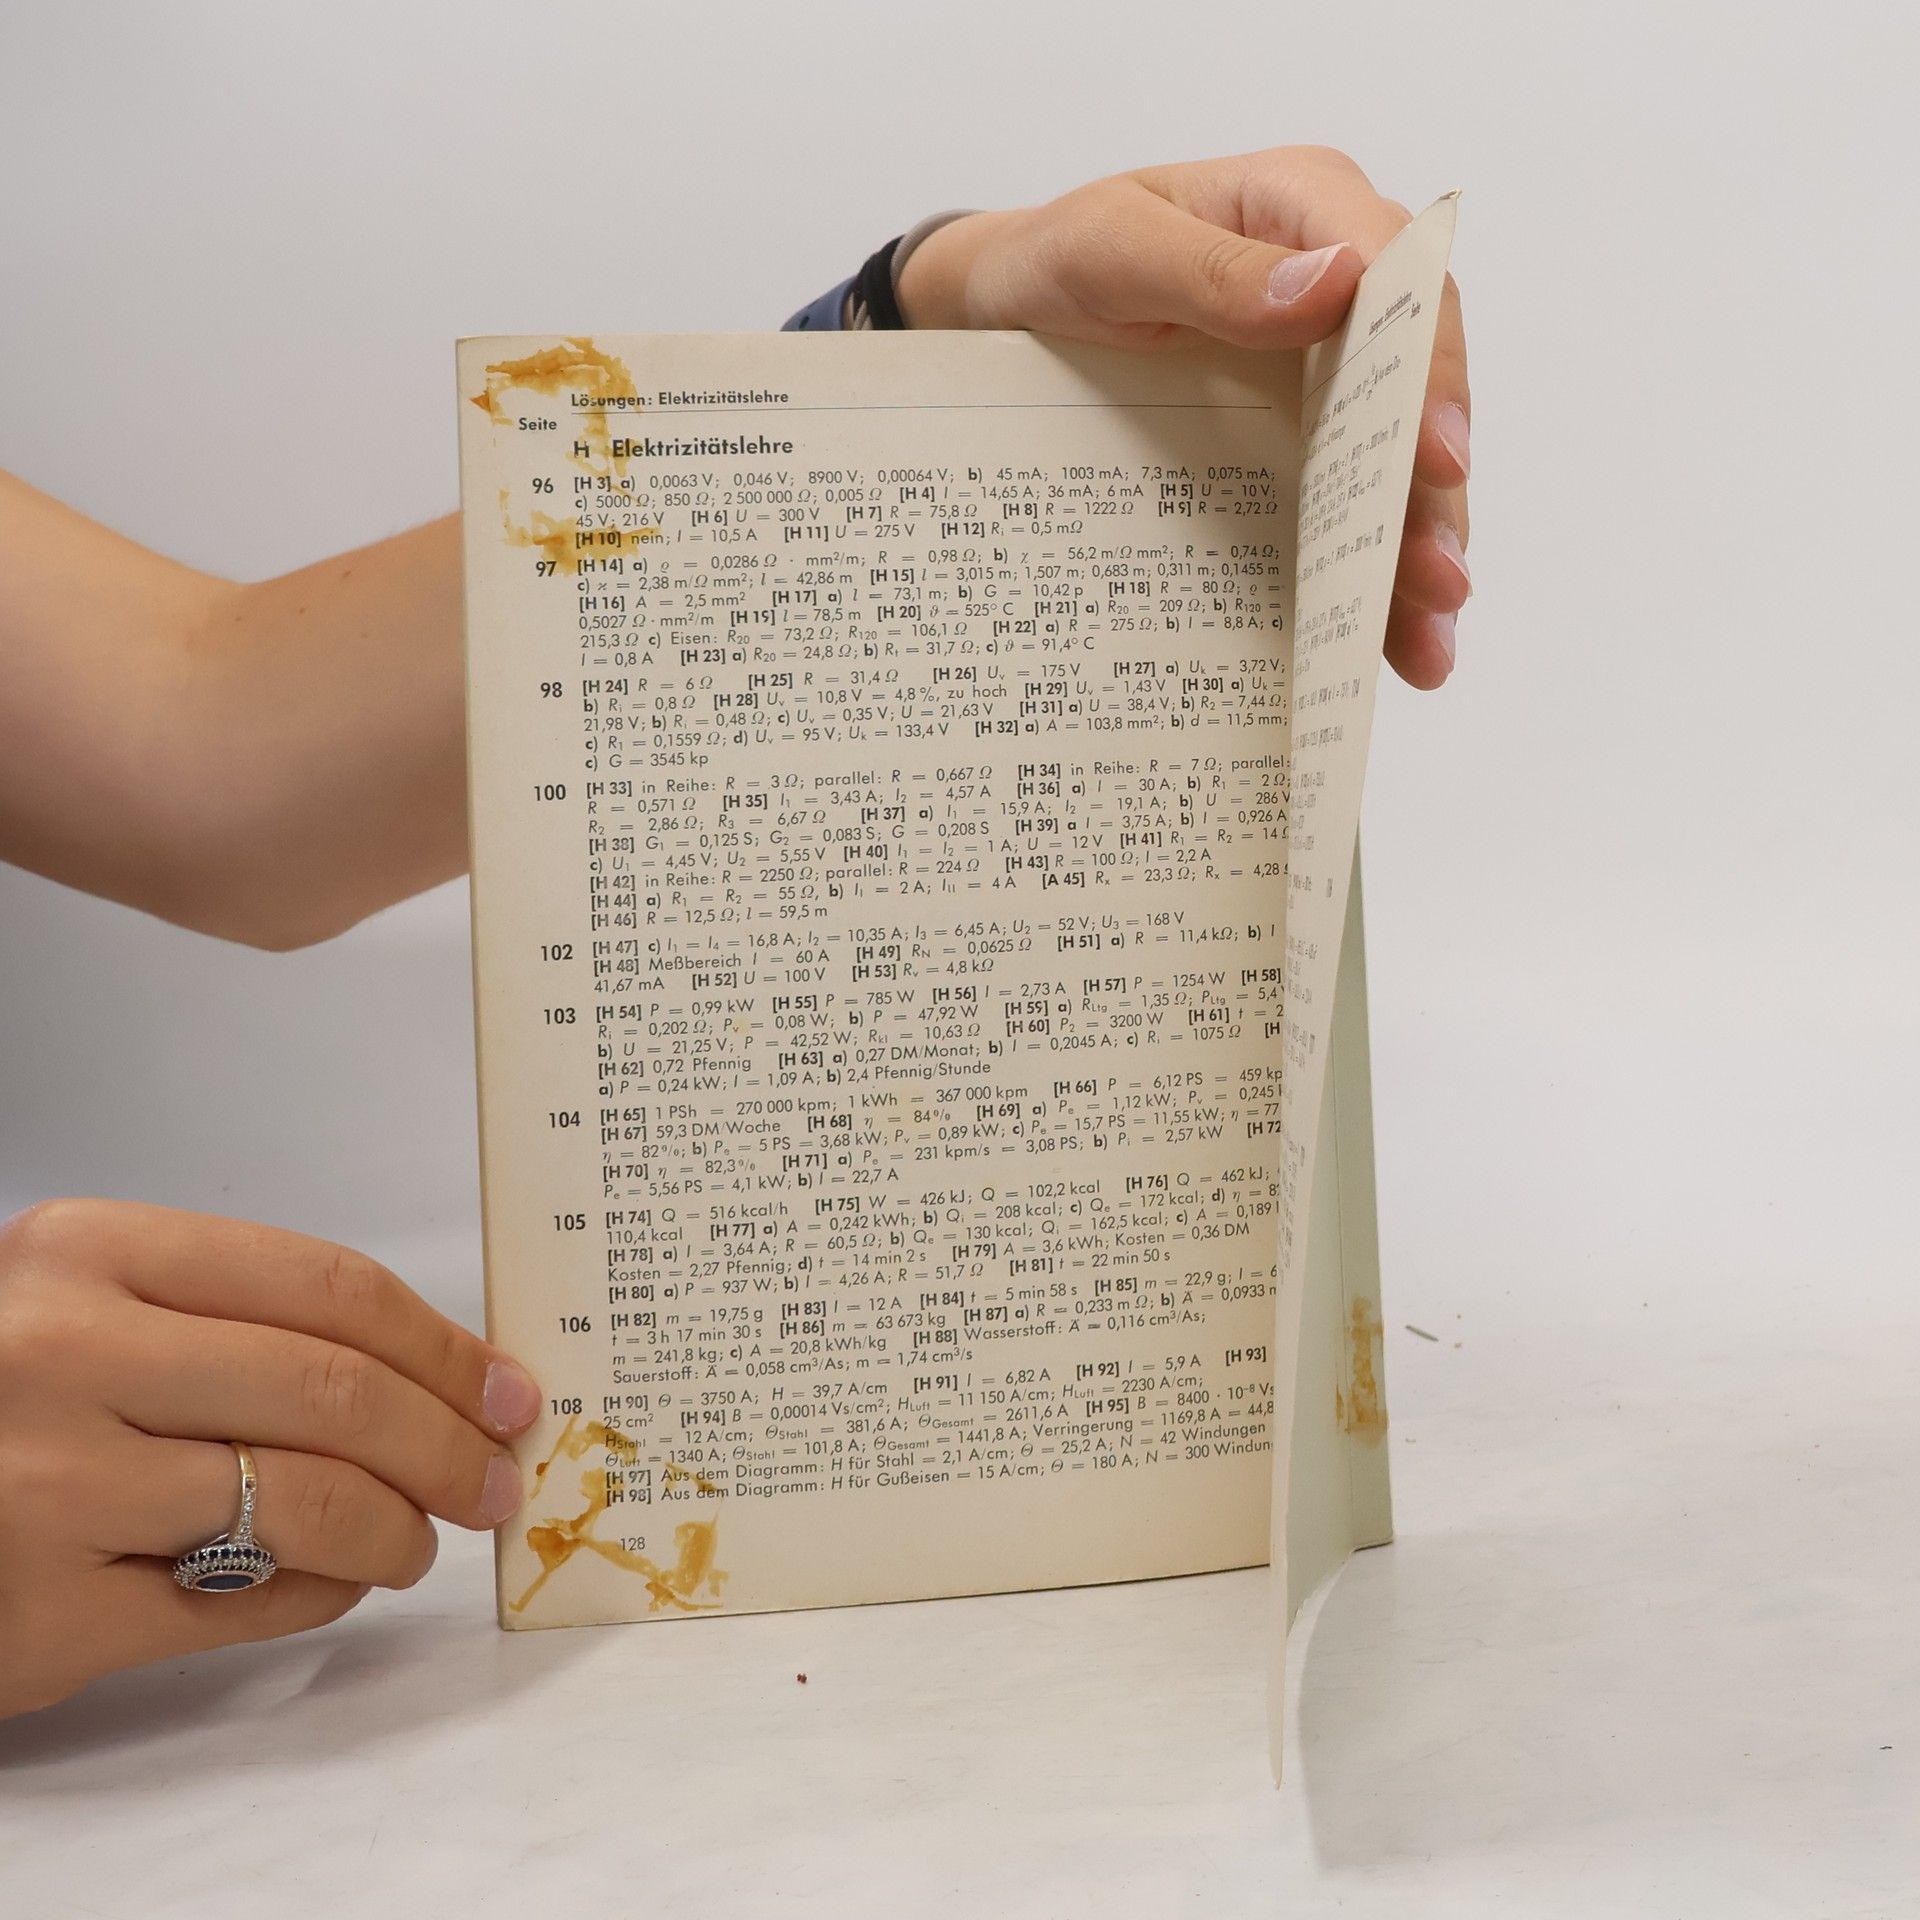 Lösungen: Elektrizitätslehre
Seite
H Elektrizitätslehre
96 [H 3] a) 0,0063 V; 0,046 V; 8900 V; 0,00064 V; b) 45 mA; 1003 mA; 7,3 mA; 0,075 mA;
c) 5000 Ω; 850 Ω; 2 500 000 Ω; 0,005 Ω [H 4] I = 14,65 A; 36 mA; 6 mA [H 5] U = 10 V;
45 V; 216 V [H 6] U = 300 V [H 7] R = 75,8 Ω [H 8] R = 1222 Ω [H 9] R = 2,72 Ω
[H 10] nein; I = 10,5 A [H 11] U = 275 V [H 12] Rᵢ = 0,5 mΩ
97 [H 14] a) ϱ = 0,0286 Ω · mm²/m; R = 0,98 Ω; b) χ = 56,2 m/Ω mm²; R = 0,74 Ω;
c) ϰ = 2,38 m/Ω mm²; l = 42,86 m [H 15] l = 3,015 m; 1,507 m; 0,683 m; 0,311 m; 0,1455 m
[H 16] A = 2,5 mm² [H 17] a) l = 73,1 m; b) G = 10,42 p [H 18] R = 80 Ω; ϱ =
0,5027 Ω · mm²/m [H 19] l = 78,5 m [H 20] ϑ = 525° C [H 21] a) R₂₀ = 209 Ω; b) R₁₂₀ =
215,3 Ω c) Eisen: R₂₀ = 73,2 Ω; R₁₂₀ = 106,1 Ω [H 22] a) R = 275 Ω; b) I = 8,8 A; c)
I = 0,8 A [H 23] a) R₂₀ = 24,8 Ω; b) Rₜ = 31,7 Ω; c) ϑ = 91,4° C
98 [H 24] R = 6 Ω [H 25] R = 31,4 Ω [H 26] Uᵥ = 175 V [H 27] a) Uₖ = 3,72 V;
b) Rᵢ = 0,8 Ω [H 28] Uᵥ = 10,8 V = 4,8 %, zu hoch [H 29] Uᵥ = 1,43 V [H 30] a) Uₖ =
21,98 V; b) Rᵢ = 0,48 Ω; c) Uᵥ = 0,35 V; U = 21,63 V [H 31] a) U = 38,4 V; b) R₂ = 7,44 Ω;
c) R₁ = 0,1559 Ω; d) Uᵥ = 95 V; Uₖ = 133,4 V [H 32] a) A = 103,8 mm²; b) d = 11,5 mm;
c) G = 3545 kp
100 [H 33] in Reihe: R = 3 Ω; parallel: R = 0,667 Ω [H 34] in Reihe: R = 7 Ω; parallel:
R = 0,571 Ω [H 35] I₁ = 3,43 A; I₂ = 4,57 A [H 36] a) I = 30 A; b) R₁ = 2 Ω;
R₂ = 2,86 Ω; R₃ = 6,67 Ω [H 37] a) I₁ = 15,9 A; I₂ = 19,1 A; b) U = 286 V
[H 38] G₁ = 0,125 S; G₂ = 0,083 S; G = 0,208 S [H 39] a I = 3,75 A; b) I = 0,926 A
c) U₁ = 4,45 V; U₂ = 5,55 V [H 40] I₁ = I₂ = 1 A; U = 12 V [H 41] R₁ = R₂ = 14
[H 42] in Reihe: R = 2250 Ω; parallel: R = 224 Ω [H 43] R = 100 Ω; I = 2,2 A
[H 44] a) R₁ = R₂ = 55 Ω, b) Iᵢ = 2 A; Iᵢᵢ = 4 A [A 45] Rₓ = 23,3 Ω; Rₓ = 4,28
[H 46] R = 12,5 Ω; l = 59,5 m
102 [H 47] c) I₁ = I₄ = 16,8 A; I₂ = 10,35 A; I₃ = 6,45 A; U₂ = 52 V; U₃ = 168 V
[H 48] Meßbereich I = 60 A [H 49] R_N = 0,0625 Ω [H 51] a) R = 11,4 kΩ; b) I
41,67 mA [H 52] U = 100 V [H 53] Rᵥ = 4,8 kΩ
103 [H 54] P = 0,99 kW [H 55] P = 785 W [H 56] I = 2,73 A [H 57] P = 1254 W [H 58]
Rᵢ = 0,202 Ω; Pᵥ = 0,08 W; b) P = 47,92 W [H 59] a) R_Ltg = 1,35 Ω; P_Ltg = 5,4
b) U = 21,25 V; P = 42,52 W; R_kl = 10,63 Ω [H 60] P₂ = 3200 W [H 61] t = 2
[H 62] 0,72 Pfennig [H 63] a) 0,27 DM/Monat; b) I = 0,2045 A; c) Rᵢ = 1075 Ω [H
a) P = 0,24 kW; I = 1,09 A; b) 2,4 Pfennig/Stunde
104 [H 65] 1 PSh = 270 000 kpm; 1 kWh = 367 000 kpm [H 66] P = 6,12 PS = 459 kp
[H 67] 59,3 DM/Woche [H 68] η = 84% [H 69] a) Pₑ = 1,12 kW; Pᵥ = 0,245
η = 82%; b) Pₑ = 5 PS = 3,68 kW; Pᵥ = 0,89 kW; c) Pₑ = 15,7 PS = 11,55 kW; η = 77
[H 70] η = 82,3% [H 71] a) Pₑ = 231 kpm/s = 3,08 PS; b) Pᵢ = 2,57 kW [H 72
Pₑ = 5,56 PS = 4,1 kW; b) I = 22,7 A
105 [H 74] Q = 516 kcal/h [H 75] W = 426 kJ; Q = 102,2 kcal [H 76] Q = 462 kJ;
110,4 kcal [H 77] a) A = 0,242 kWh; b) Qᵢ = 208 kcal; c) Qₑ = 172 kcal; d) η = 8
[H 78] a) I = 3,64 A; R = 60,5 Ω; b) Qₑ = 130 kcal; Qᵢ = 162,5 kcal; c) A = 0,189
Kosten = 2,27 Pfennig; d) t = 14 min 2 s [H 79] A = 3,6 kWh; Kosten = 0,36 DM
[H 80] a) P = 937 W; b) I = 4,26 A; R = 51,7 Ω [H 81] t = 22 min 50 s
106 [H 82] m = 19,75 g [H 83] I = 12 A [H 84] t = 5 min 58 s [H 85] m = 22,9 g; I = 6
t = 3 h 17 min 30 s [H 86] m = 63 673 kg [H 87] a) R = 0,233 m Ω; b) Ä = 0,0933
m = 241,8 kg; c) A = 20,8 kWh/kg [H 88] Wasserstoff: Ä = 0,116 cm³/As;
Sauerstoff: Ä = 0,058 cm³/As; m = 1,74 cm³/s
108 [H 90] Θ = 3750 A; H = 39,7 A/cm [H 91] I = 6,82 A [H 92] I = 5,9 A [H 93]
25 cm² [H 94] B = 0,00014 Vs/cm²; H_Luft = 11 150 A/cm; H_Luft = 2230 A/cm;
H_Stahl = 12 A/cm; Θ_Stahl = 381,6 A; Θ_Gesamt = 2611,6 A [H 95] B = 8400 · 10⁻⁸ Vs
Θ_Luft = 1340 A; Θ_Stahl = 101,8 A; Θ_Gesamt = 1441,8 A; Verringerung = 1169,8 A = 44,8
[H 97] Aus dem Diagramm: H für Stahl = 2,1 A/cm; Θ = 25,2 A; N = 42 Windungen
[H 98] Aus dem Diagramm: H für Gußeisen = 15 A/cm; Θ = 180 A; N = 300 Windun
128